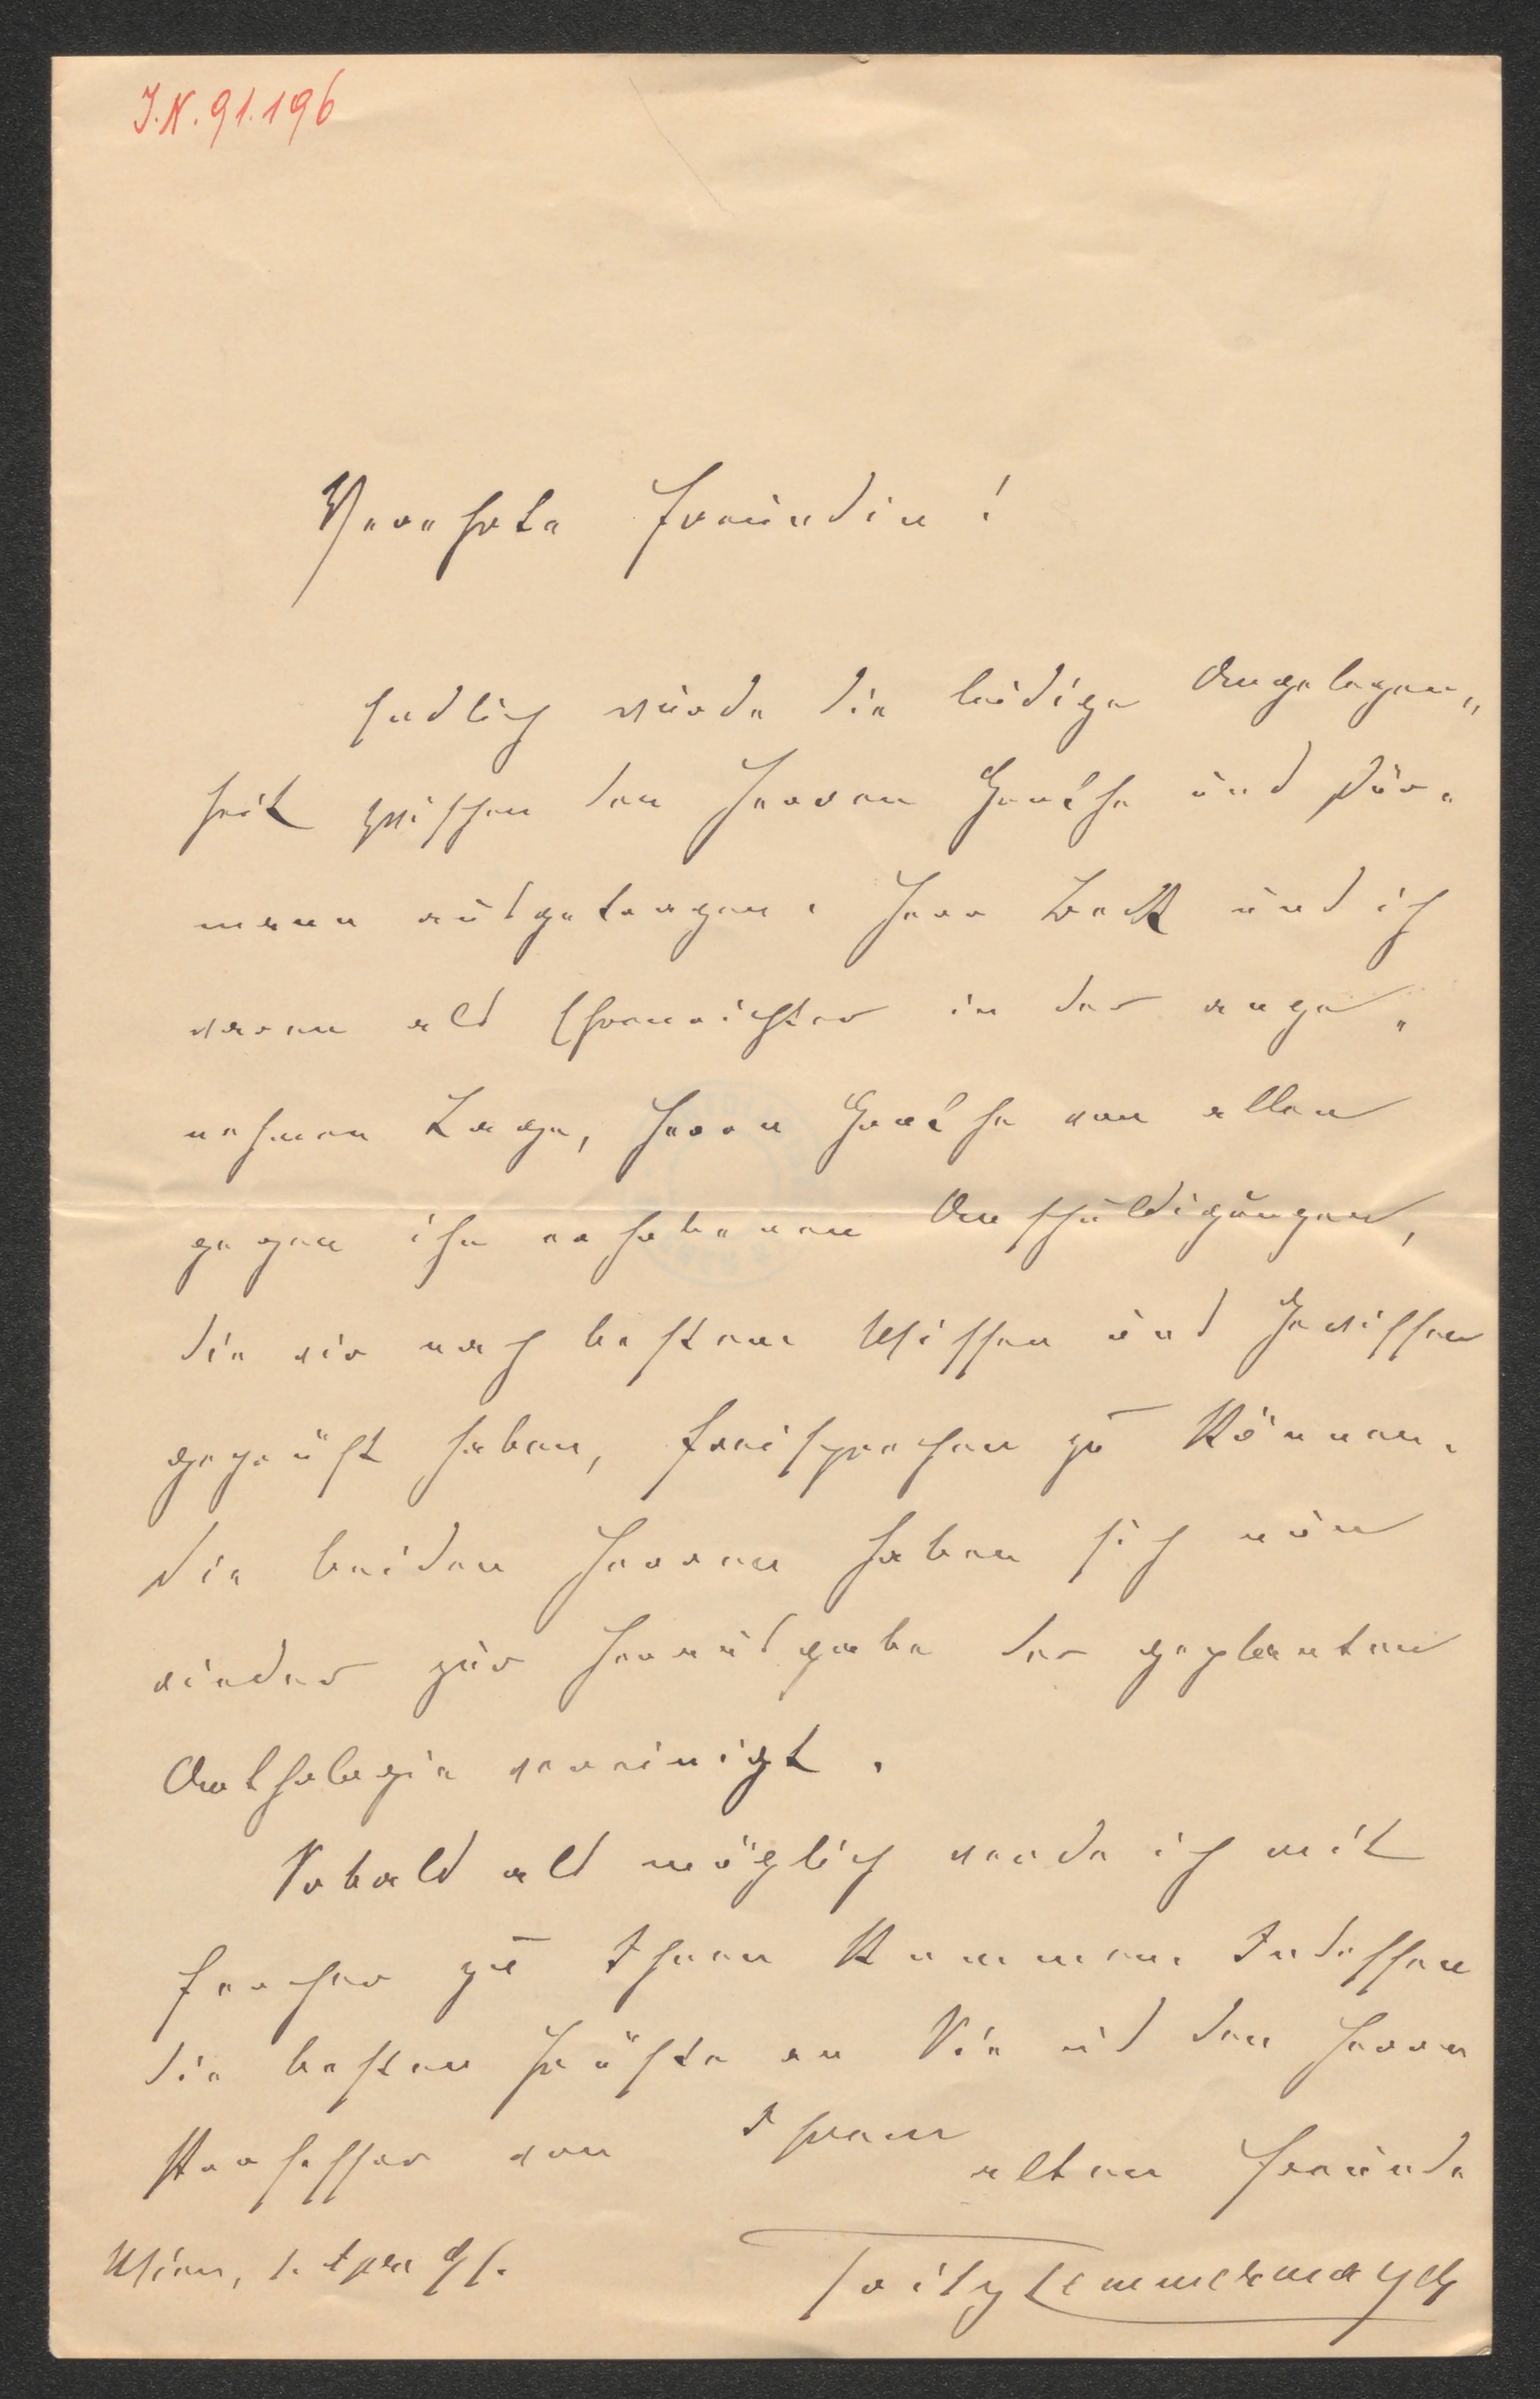 J.N. 91.196
Verehrte Freundin!
Endlich wurde die leidige Angelegen„
heit zwischen den Herren Grothe und Dör„
mann ausgetragen. Herr Beck und ich
waren als Ehrenrichter in der ange„
nehmen Lage, Herrn Grothe von allen
gegen ihn erhobenen Anschuldigungen,
die wir nach bestem Wissen und Gewissen
geprüft haben, freisprechen zu können.
Die beiden Herren haben sich nun
wieder zur Herausgabe der geplanten
Anthologie vereinigt.
Sobald als möglich werde ich mit
Fercher zu Ihnen kommen. Indessen
die besten Grüße an Sie und den Herrn
Professor von Ihrem
alten Freunde
Wien, 1. Apr 91.
Fritz Lemmermayer